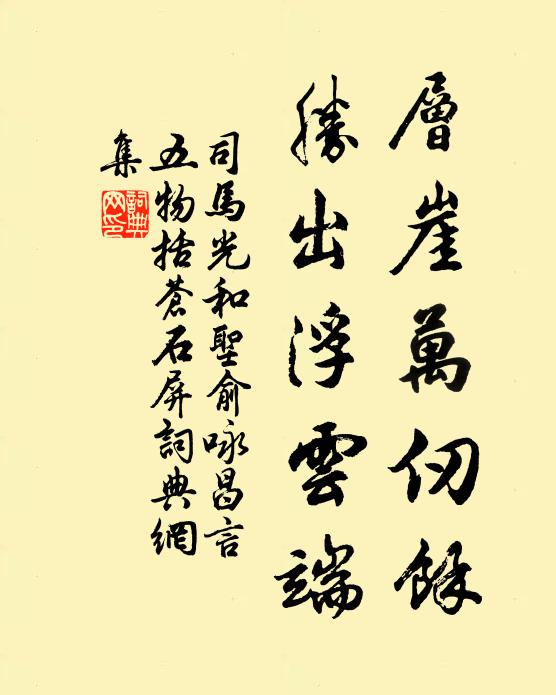 層崖萬仞餘
勝出浮雲端
司馬光和聖俞咏昌言
五物括蒼石屏詞典網
集
詞典
网印